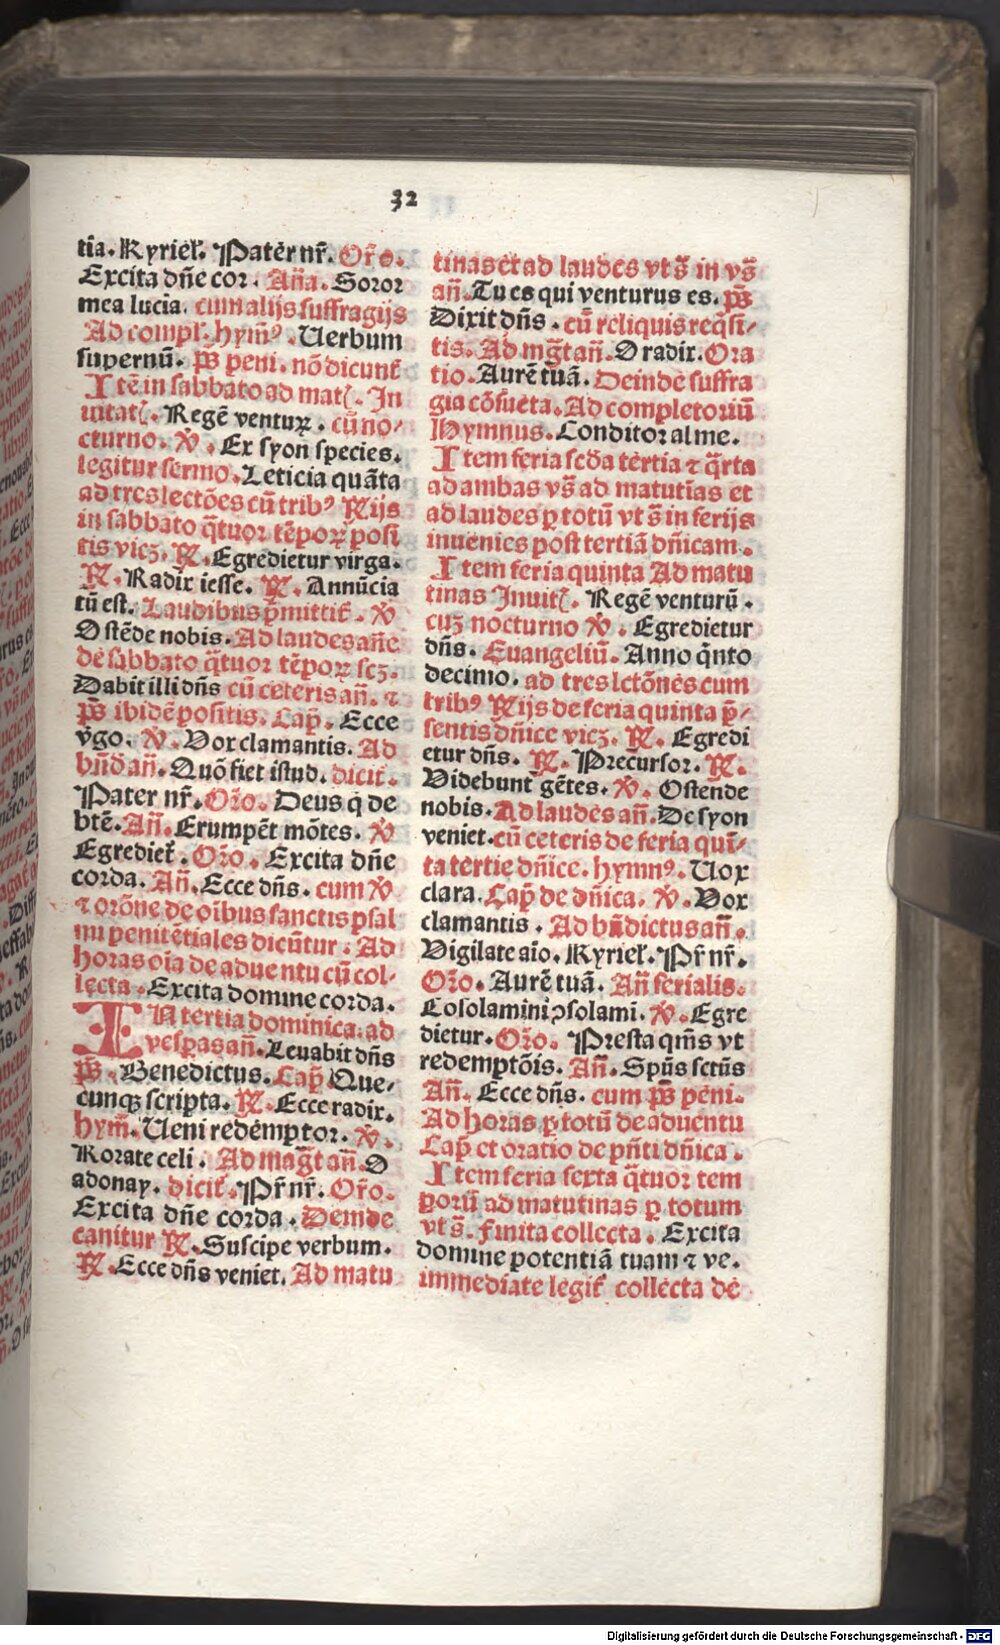 32
tia. Kyriel̃. Patẽr nr̃. Or̃o.
Excita dñe cor. Añ̃a. Soror
mea lucia. cum alijs suffragijs
Ad compl̃. hym̃ꝰ. Uerbum
supernũ. p̃s peni. nõ dicunt̃
Itẽ in sabbato ad mat̃. In
uitat̃. Regẽ venturꝝ. cũ no⸗
cturno. ℣. Ex syon species.
legitur sermo. Leticia quãta
ad tres lectões cũ tribꝰ ℞ijs
in sabbato q̃tuor tẽporꝝ posi
tis vicꝫ. ℞. Egredietur virga.
℞. Radix iesse. ℞. Annũcia
tũ est. Laudibus p̃mittit̃. ℣
Ostẽde nobis. Ad laudes añe
de sabbato q̃tuor tẽporꝝ scꝫ.
Dabit illi dñs cũ ceteris añ. ⁊
p̃s ibidẽ positis. Cap̃. Ecce
v̾go. ℣. Vox clamantis. Ad
bñd̃ añ. Quõ fiet istud. dicit̃.
Pater nr̃. Or̃o. Deus q̃ de
btẽ. Añ. Erumpẽt mõtes. ℣
Egrediet̃. Or̃o. Excita dñe
corda. Añ. Ecce dñs. cum ℣
⁊ orõne de oĩbus sanctis psal
mi penitẽtiales dicũtur. Ad
horas oĩa de aduentu cũ col⸗
lecta. Excita domine corda.
IN tertia dominica. ad
vesperas añ. Leuabit dñs
p̃s. Benedictus. Cap̃ Que⸗
cunqꝫ scripta. ℞. Ecce radix.
hym̃. Ueni redemptor. ℣.
Rorate celi. Ad mag̃t añ. O
adonay. dicit̃. Pr̃ nr̃. Or̃o.
Excita dñe corda. Deinde
canitur ℞. Suscipe verbum.
℞. Ecce dñs veniet. Ad matu
tinas et ad laudes vt s̃ in v̾s
añ. Tu es qui venturus es. p̃s
Dixit dñs. cũ reliquis reqͥsi⸗
tis. Ad mg̃t añ. O radix. Ora
tio. Aurẽ tuã. Deinde suffra
gia cõsueta. Ad completoriũ
Hymnus. Conditor alme.
Item feria scd̃a tertia ⁊ q̃rta
ad ambas vs̃ ad matutĩas et
ad laudes ꝑ totũ vt s̃ in ferijs
inuenies post tertiã dñicam.
Item feria quinta Ad matu
tinas Inuit̃. Regẽ venturũ.
cuꝫ nocturno ℣. Egredietur
dñs. Euangeliũ. Anno q̃nto
decimo. ad tres lctõnes cum
tribꝰ ℞ijs de feria quinta p̃⸗
sentis dñice vicꝫ. ℞. Egredi
etur dñs. ℞. Precursor. ℞.
Videbunt gẽtes. ℣. Ostende
nobis. Ad laudes añ. De syon
veniet. cũ ceteris de feria quĩ⸗
ta tertie dñice. hymnꝰ. Uox
clara. Cap̃ de dñica. ℣. Vox
clamantis. Ad bñdictus añ.
Vigilate aĩo. Kyriel̃. Pr̃ nr̃.
Or̃o. Aurẽ tuã. Añ ferialis.
Cosolamini ↄsolami. ℣. Egre
dietur. Or̃o. Presta qm̃s vt
redemptõis. Añ. Spũs sctũs
Añ. Ecce dñs. cum p̃s peni.
Ad horas ꝑ totũ de aduentu
Cap̃ et oratio de pñti dñica.
Item feria sexta q̃tuor tem
porũ ad matutinas ꝑ totum
vt s̃. finita collecta. Excita
domine potentiã tuam ⁊ ve.
immediate legit̃ collecta de
Digitalisierung gefördert durch die Deutsche Forschungsgemeinschaft - DFG